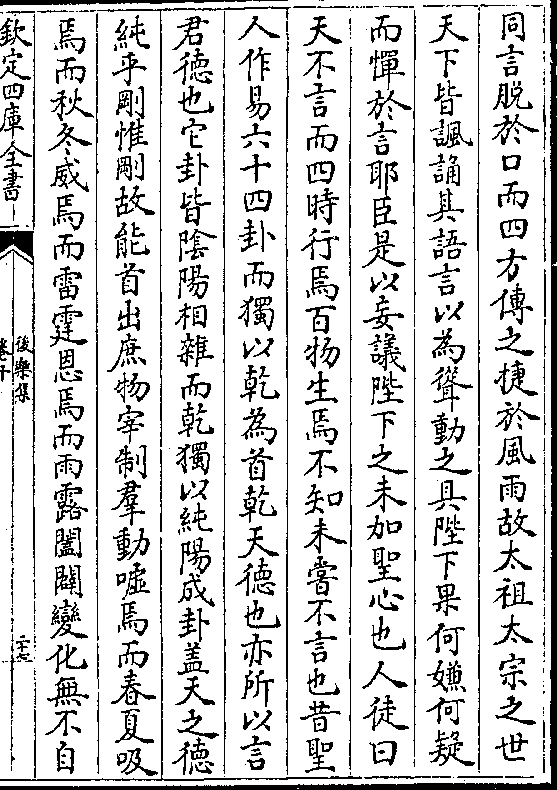 同言脱於口而四方傳之捷於風雨故太祖太宗之世
天下皆諷誦其語言以為聳動之具陛下果何嫌何疑
而憚於言耶臣是以妄議陛下之未加聖心也人徒曰
天不言而四時行焉百物生焉不知未嘗不言也昔聖
人作易六十四卦而獨以乾為首乾天德也亦所以言
君德也它卦皆陰陽相雜而乾獨以純陽成卦盖天之德
純乎剛惟剛故能首出庶物宰制羣動噓焉而春夏吸
焉而秋冬威焉而雷霆恩焉而雨露闔闢變化無不自
欽定四庫全書
後樂集
卷十